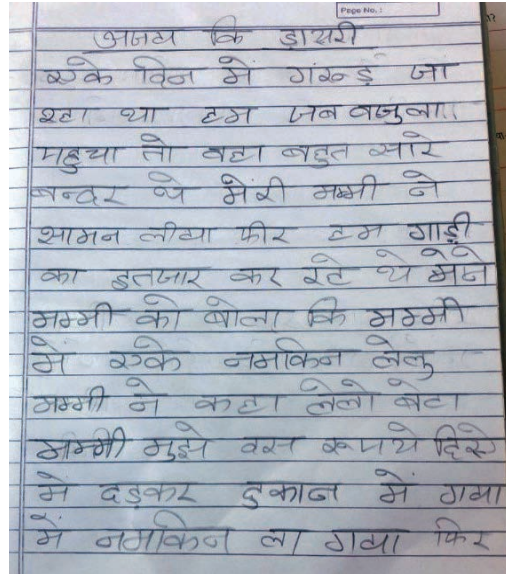 Page No.:
अजय कि डायरी
एके दिन में गरुड़ जा
रहा था हम जब बजुला
पहुचा तो वहा बहुत सारे
बन्दर थे मेरी मम्मी ने
सामन लीया फीर हम गाड़ी
का इतजार कर रहे थे मेने
मम्मी को बोला कि मम्मी
में एके नमकिन लेलु
मम्मी ने कहा लेलो बेटा
मम्मी मुझे दस रूपये दिये
में दड़कर दुकान में गया
में नमकिन ला गया फिर